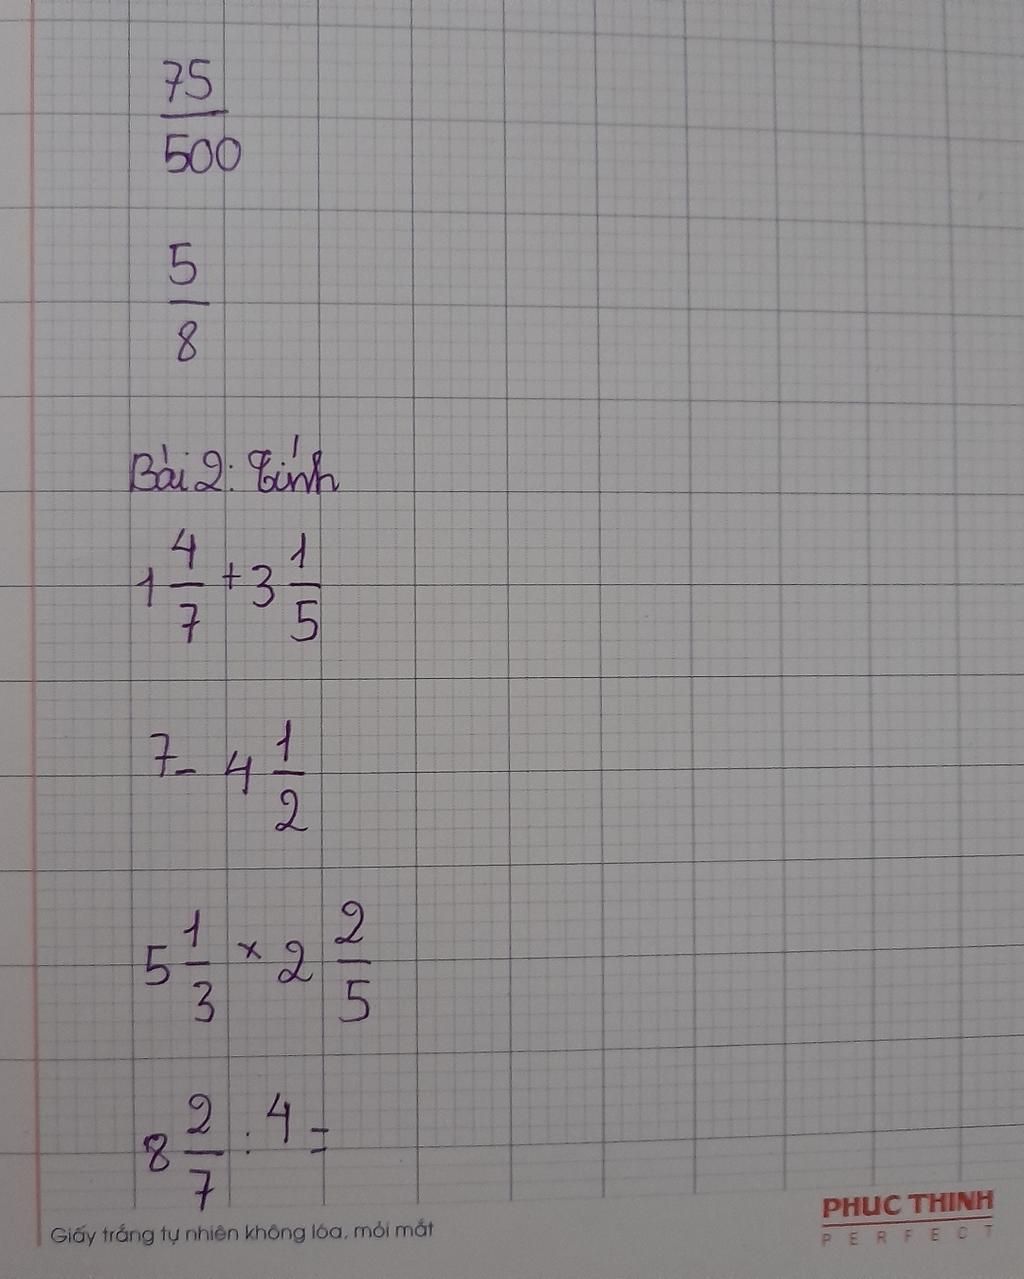 75/500
5/8
Bài 2: Tính
1 4/7 + 3 1/5
7 - 4 1/2
5 1/3 × 2 2/5
8 2/7 : 4 =
Giấy trắng tự nhiên không lóa, mỏi mắt
PHUC THINH
PERFECT